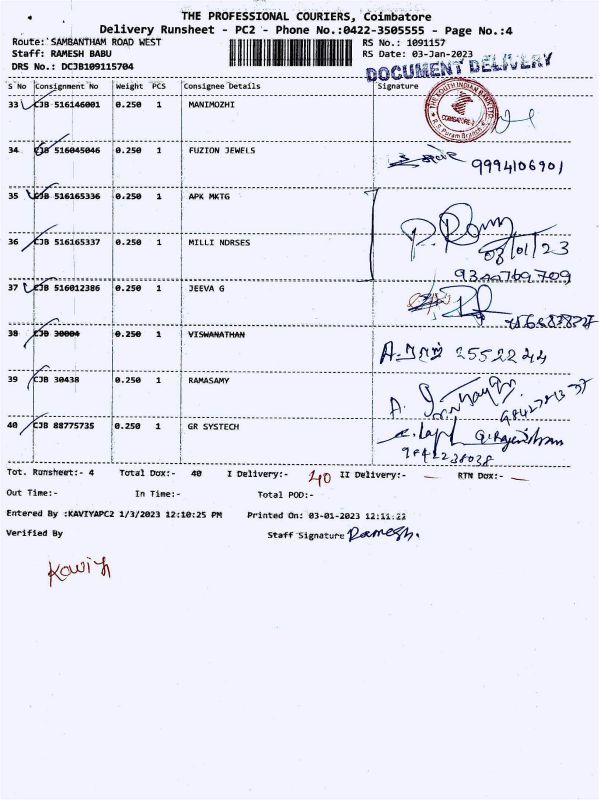 THE PROFESSIONAL COURIERS, Coimbatore
Delivery Runsheet - PC2 - Phone No.:0422-3505555 - Page No.:4
Route: SAMBANTHAM ROAD WEST RS No.: 1091157
Staff: RAMESH BABU RS Date: 03-Jan-2023
DRS No.: DCJB109115704 DOCUMENT DELIVERY
S No Consignment No Weight PCS Consignee Details Signature
33 CJB 516146001 0.250 1 MANIMOZHI
THE SOUTH INDIAN BANK LTD. COIMBATORE-2 R.S. Puram Branch
34 CJB 516045046 0.250 1 FUZION JEWELS
9994106901
35 CJB 516165336 0.250 1 APK MKTG
36 CJB 516165337 0.250 1 MILLI NDRSES
03/01/23
37 CJB 516012386 0.250 1 JEEVA G
38 CJB 30004 0.250 1 VISWANATHAN
2552244
39 CJB 30438 0.250 1 RAMASAMY
40 CJB 88775735 0.250 1 GR SYSTECH
9842238038
Tot. Runsheet:- 4 Total Dox:- 40 I Delivery:- 40 II Delivery:- — RTN Dox:- —
Out Time:- In Time:- Total POD:-
Entered By :KAVIYAPC2 1/3/2023 12:10:25 PM Printed On: 03-01-2023 12:11:22
Verified By Staff Signature Ramesh.